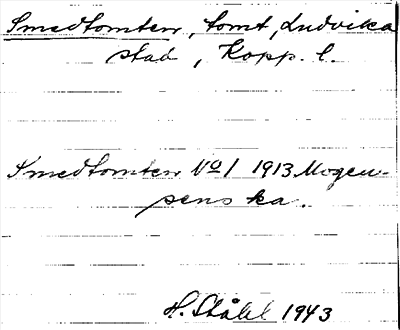 Smedtomten, tomt, Ludvika
stad, Kopp. l.
Smedtomten No 1 1913 Mogen-
senska.
H. Ståhl 1943